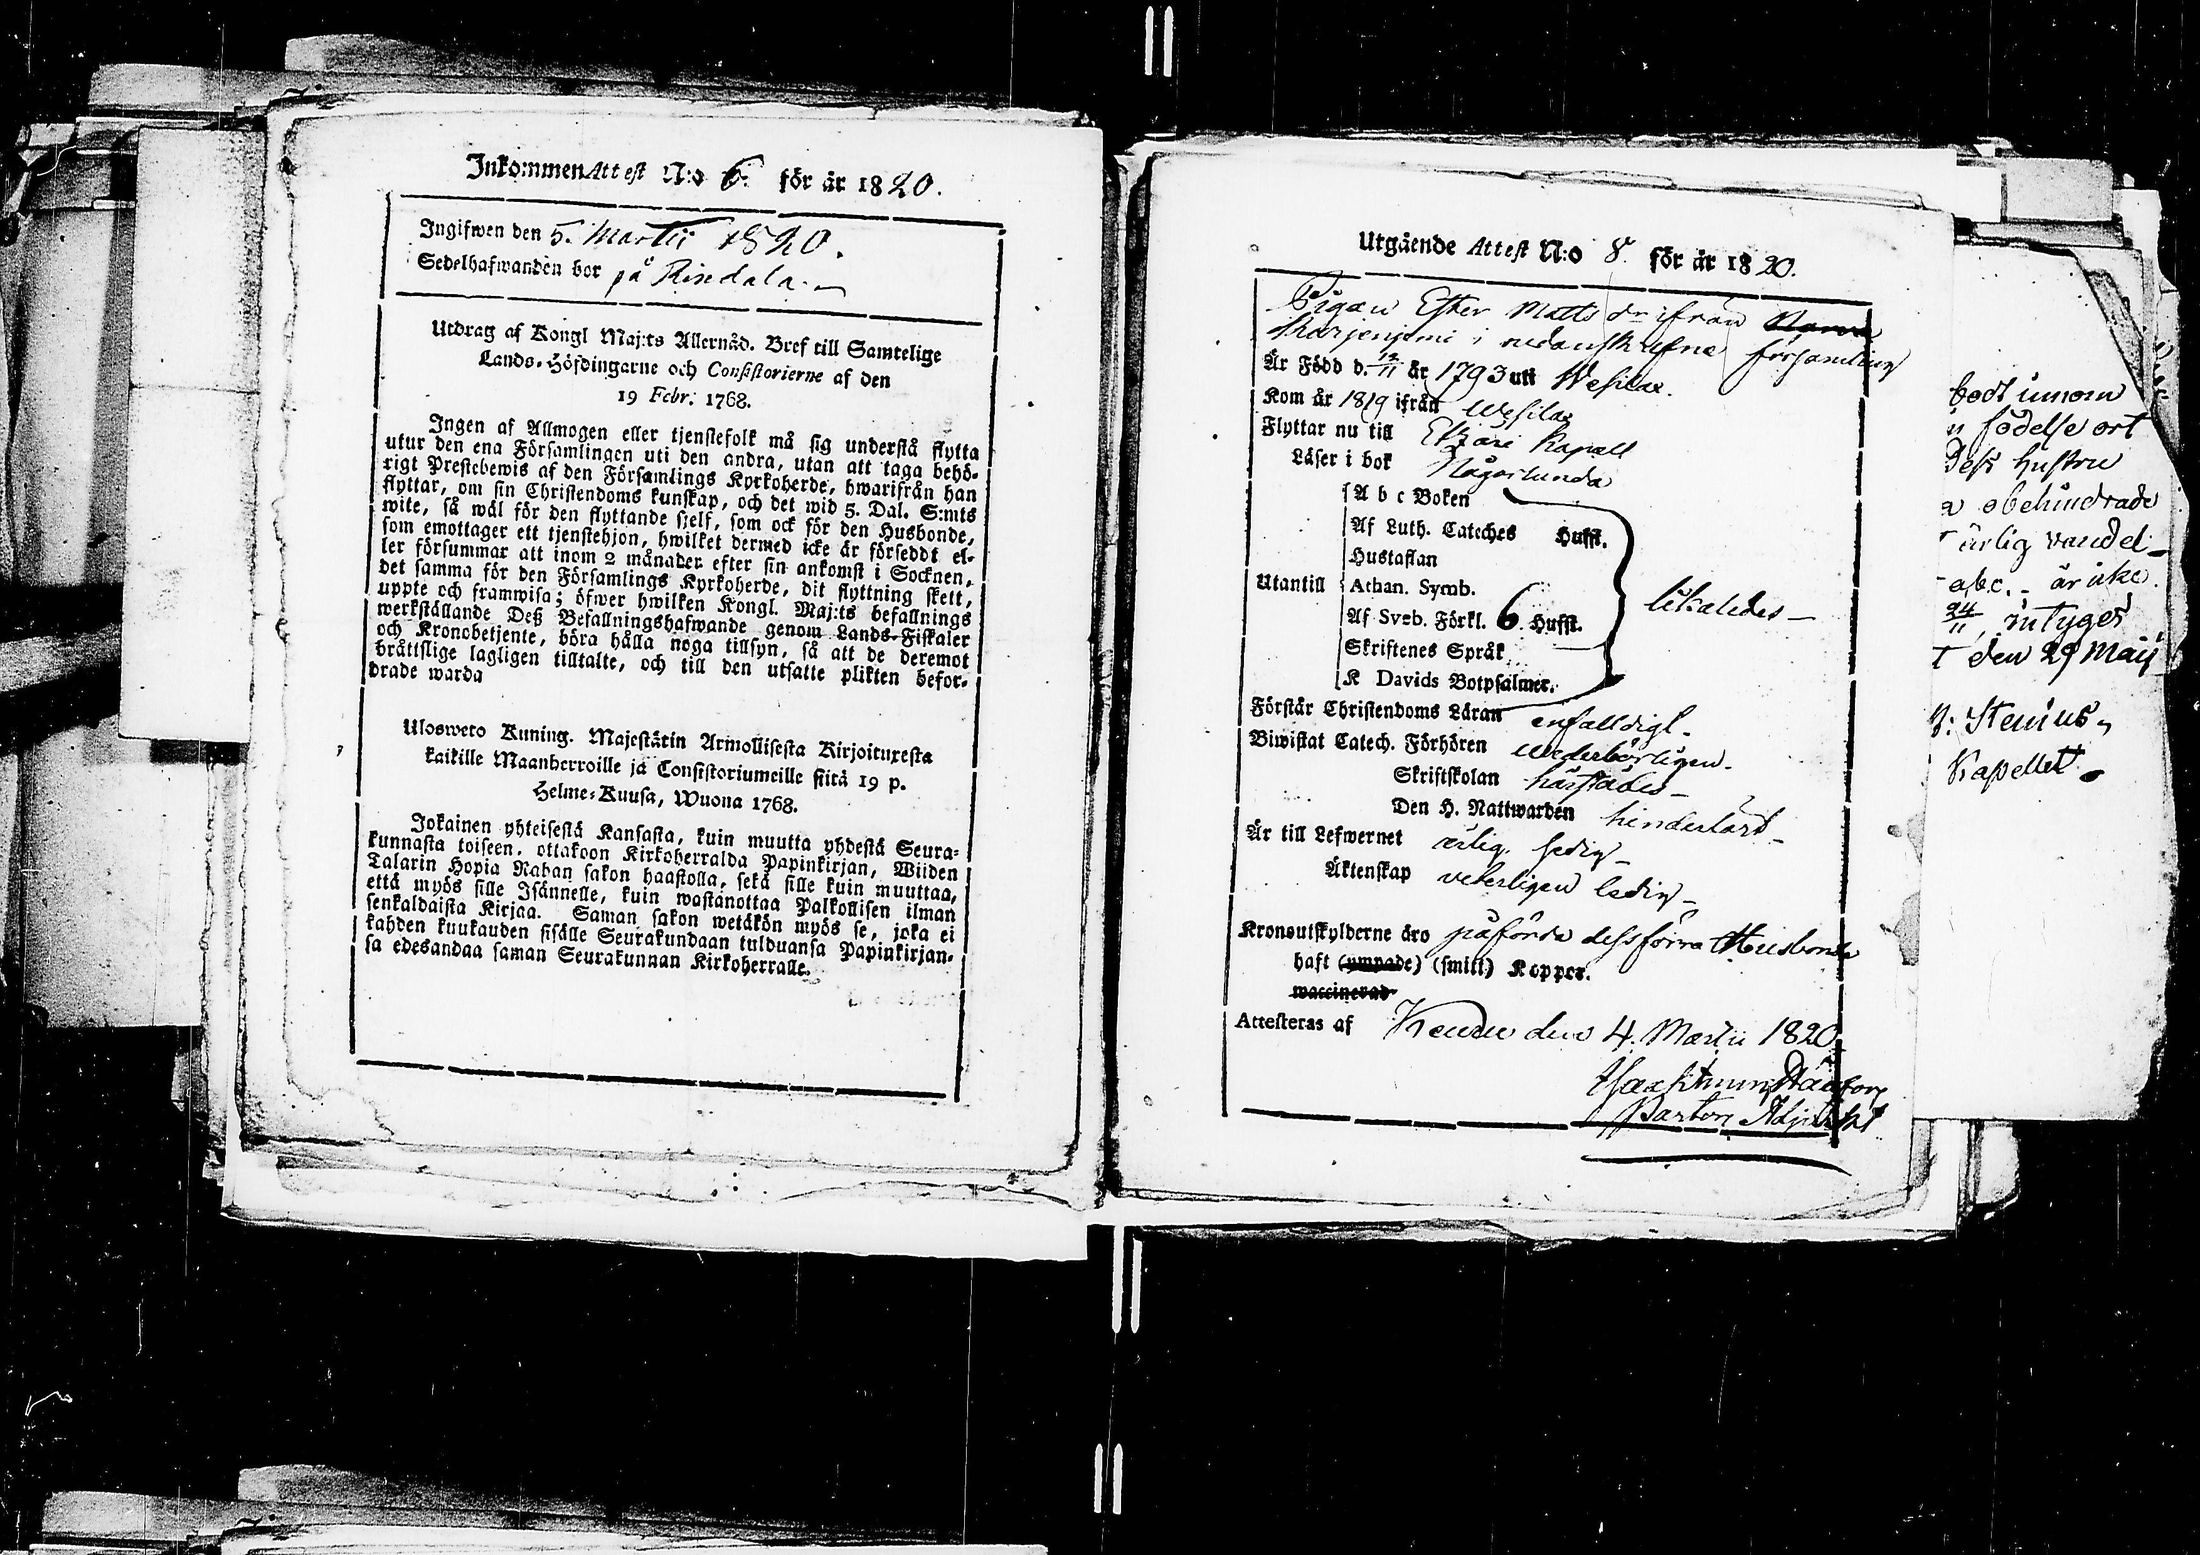 Inkommen Attest N:o 6. för år 1820.
Ingifwen den 5. Martii 1820.
Sedelhafwanden bor på Rindala.
Utdrag af Kongl Maj:ts Allernåd. Bref till Samtelige
Lands-Höfdingarne och Consistorierne af den
19 Febr. 1768.
Ingen af Allmogen eller tjenstefolk må sig understå flytta
utur den ena Församlingen uti den andra, utan att taga behö-
rigt Prestebewis af den Församlings Kyrkoherde, hwarifrån han
flyttar, om sin Christendoms kunskap, och det wid 5. Dal. S:mts
wite, så wäl för den flyttande sjelf, som ock för den Husbonde,
som emottager ett tjenstehjon, hwilket dermed icke är försedt el-
ler försummar att inom 2 månader efter sin ankomst i Socknen,
det samma för den Församlings Kyrkoherde, dit flyttning skett,
uppte och framwisa; öfwer hwilken Kongl. Maj:ts befallnings
werkställande Deß Befallningshafwande genom Lands-Fiskaler
och Kronobetjente, böra hålla noga tillsyn, så att de deremot
bråttslige lagligen tilltalte, och till den utsatte plikten befor-
drade warda
Ulosweto Kuning. Majestätin Armollisesta Kirjoituxesta
kaikille Maanherroille ja Consistoriumeille siitä 19 p.
Helme-Kuusa, Wuona 1768.
Jokainen yhteisestä Kansasta, kuin muutta yhdestä Seura-
kunnasta toiseen, ottakoon Kirkoherralda Papinkirjan, Wiiden
Talarin Hopia Rahan sakon haastolla, sekä sille kuin muuttaa,
että myös sille Isännelle, kuin wastanottaa Palkollisen ilman
senkaldaista Kirjaa. Saman sakon wetäkön myös se, joka ei
kahden kuukauden sisälle Seurakundaan tulduansa Papinkirjan-
sa edesandaa saman Seurakunnan Kirkoherralle.
Utgående Attest N:o 8. för år 1820.
Pigan Ester Matts dr ifrån
Harjenjemi i nedanskrefne församling
Är Född d. 12/11 år 1793 uti Wesilax.
Kom år 1819 ifrån Wesilax
Flyttar nu till Etzäri Kapell
Läser i bok Någorlunda
A b c Boken
Af Luth. Cateches Husst.
Hustaflan
Utantill Athan. Symb.
Af Sveb. Förkl. 6 Husst.
likaledes
Skriftenes Språk
K Davids Botpsalmer.
Förstår Christendoms Läran enfalldigt.
Biwistat Catech. Förhören wederbörligen.
Skriftskolan härstädes
Den H. Nattwarden
Är till Lefwernet ärlig. ledig
Äktenskap veterligen ledig
Kronoutskylderne äro påförde dess förra Husbonde
haft (ympade) (smitt) Koppor.
waccinerad
Attesteras af den 4. Martii 1820
Pastors Adjunkt
bodt innom
födelse ort
Dess hustru
obehindrade
ärlig vandel
abc. är icke
24/11, intyger
den 29 Maij
Stenius,
Kapellet